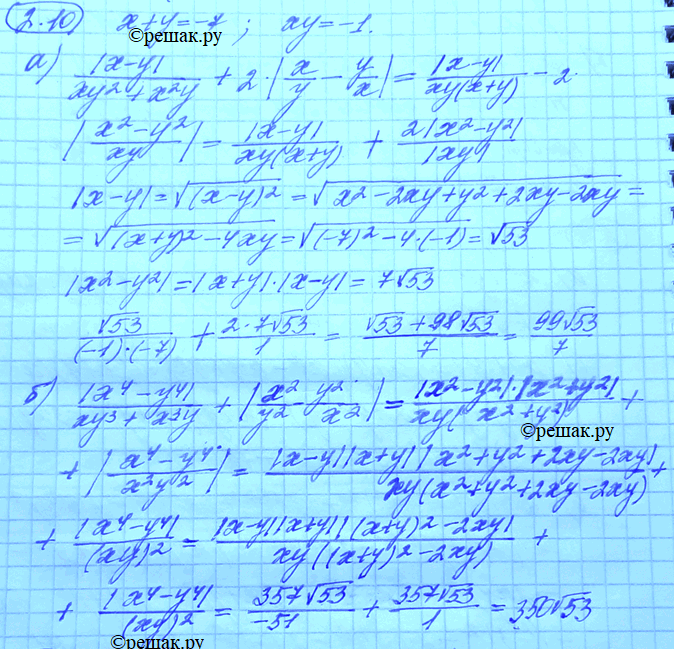 2.10) x+y=-7 ; xy=-1.
©решак.ру
а) |x-y|/(xy²+x²y) + 2·|x/y - y/x| = |x-y|/(xy(x+y)) - 2·
|(x²-y²)/(xy)| = |x-y|/(xy(x+y)) + 2|x²-y²|/|xy|
|x-y|=√((x-y)²) = √(x²-2xy+y²+2xy-2xy) =
= √((x+y)²-4xy) = √((-7)²-4·(-1)) = √53
|x²-y²|=|x+y|·|x-y|=7√53
√53/((-1)·(-7)) + 2·7√53/1 = (√53+98√53)/7 = 99√53/7
б) |x⁴-y⁴|/(xy³+x³y) + |x²/y² - y²/x²| = |x²-y²|·|x²+y²|/(xy(x²+y²)) +
©решак.ру
+ |(x⁴-y⁴)/(x²y²)| = |x-y||x+y||x²+y²+2xy-2xy|/(xy(x²+y²+2xy-2xy)) +
+ |x⁴-y⁴|/(xy)² = |x-y||x+y||(x+y)²-2xy|/(xy((x+y)²-2xy)) +
+ |x⁴-y⁴|/(xy)² = 357√53/-51 + 357√53/1 = 350√53
©решак.ру